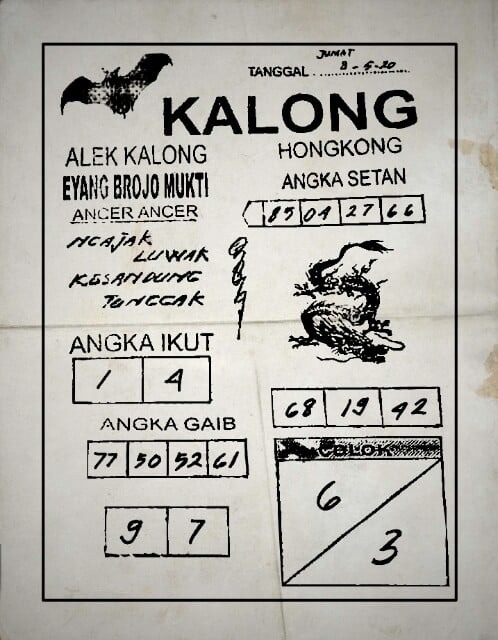 JUMAT
TANGGAL 8-5-20
KALONG
HONGKONG
ALEK KALONG
EYANG BROJO MUKTI
ANCER ANCER
ANGKA SETAN
85 04 27 66
NGAJAK
LUWAK
KESANDUNG
TONGGAK
ANGKA IKUT
1 4
68 19 42
ANGKA GAIB
77 50 52 61
COLOK
6
3
9 7